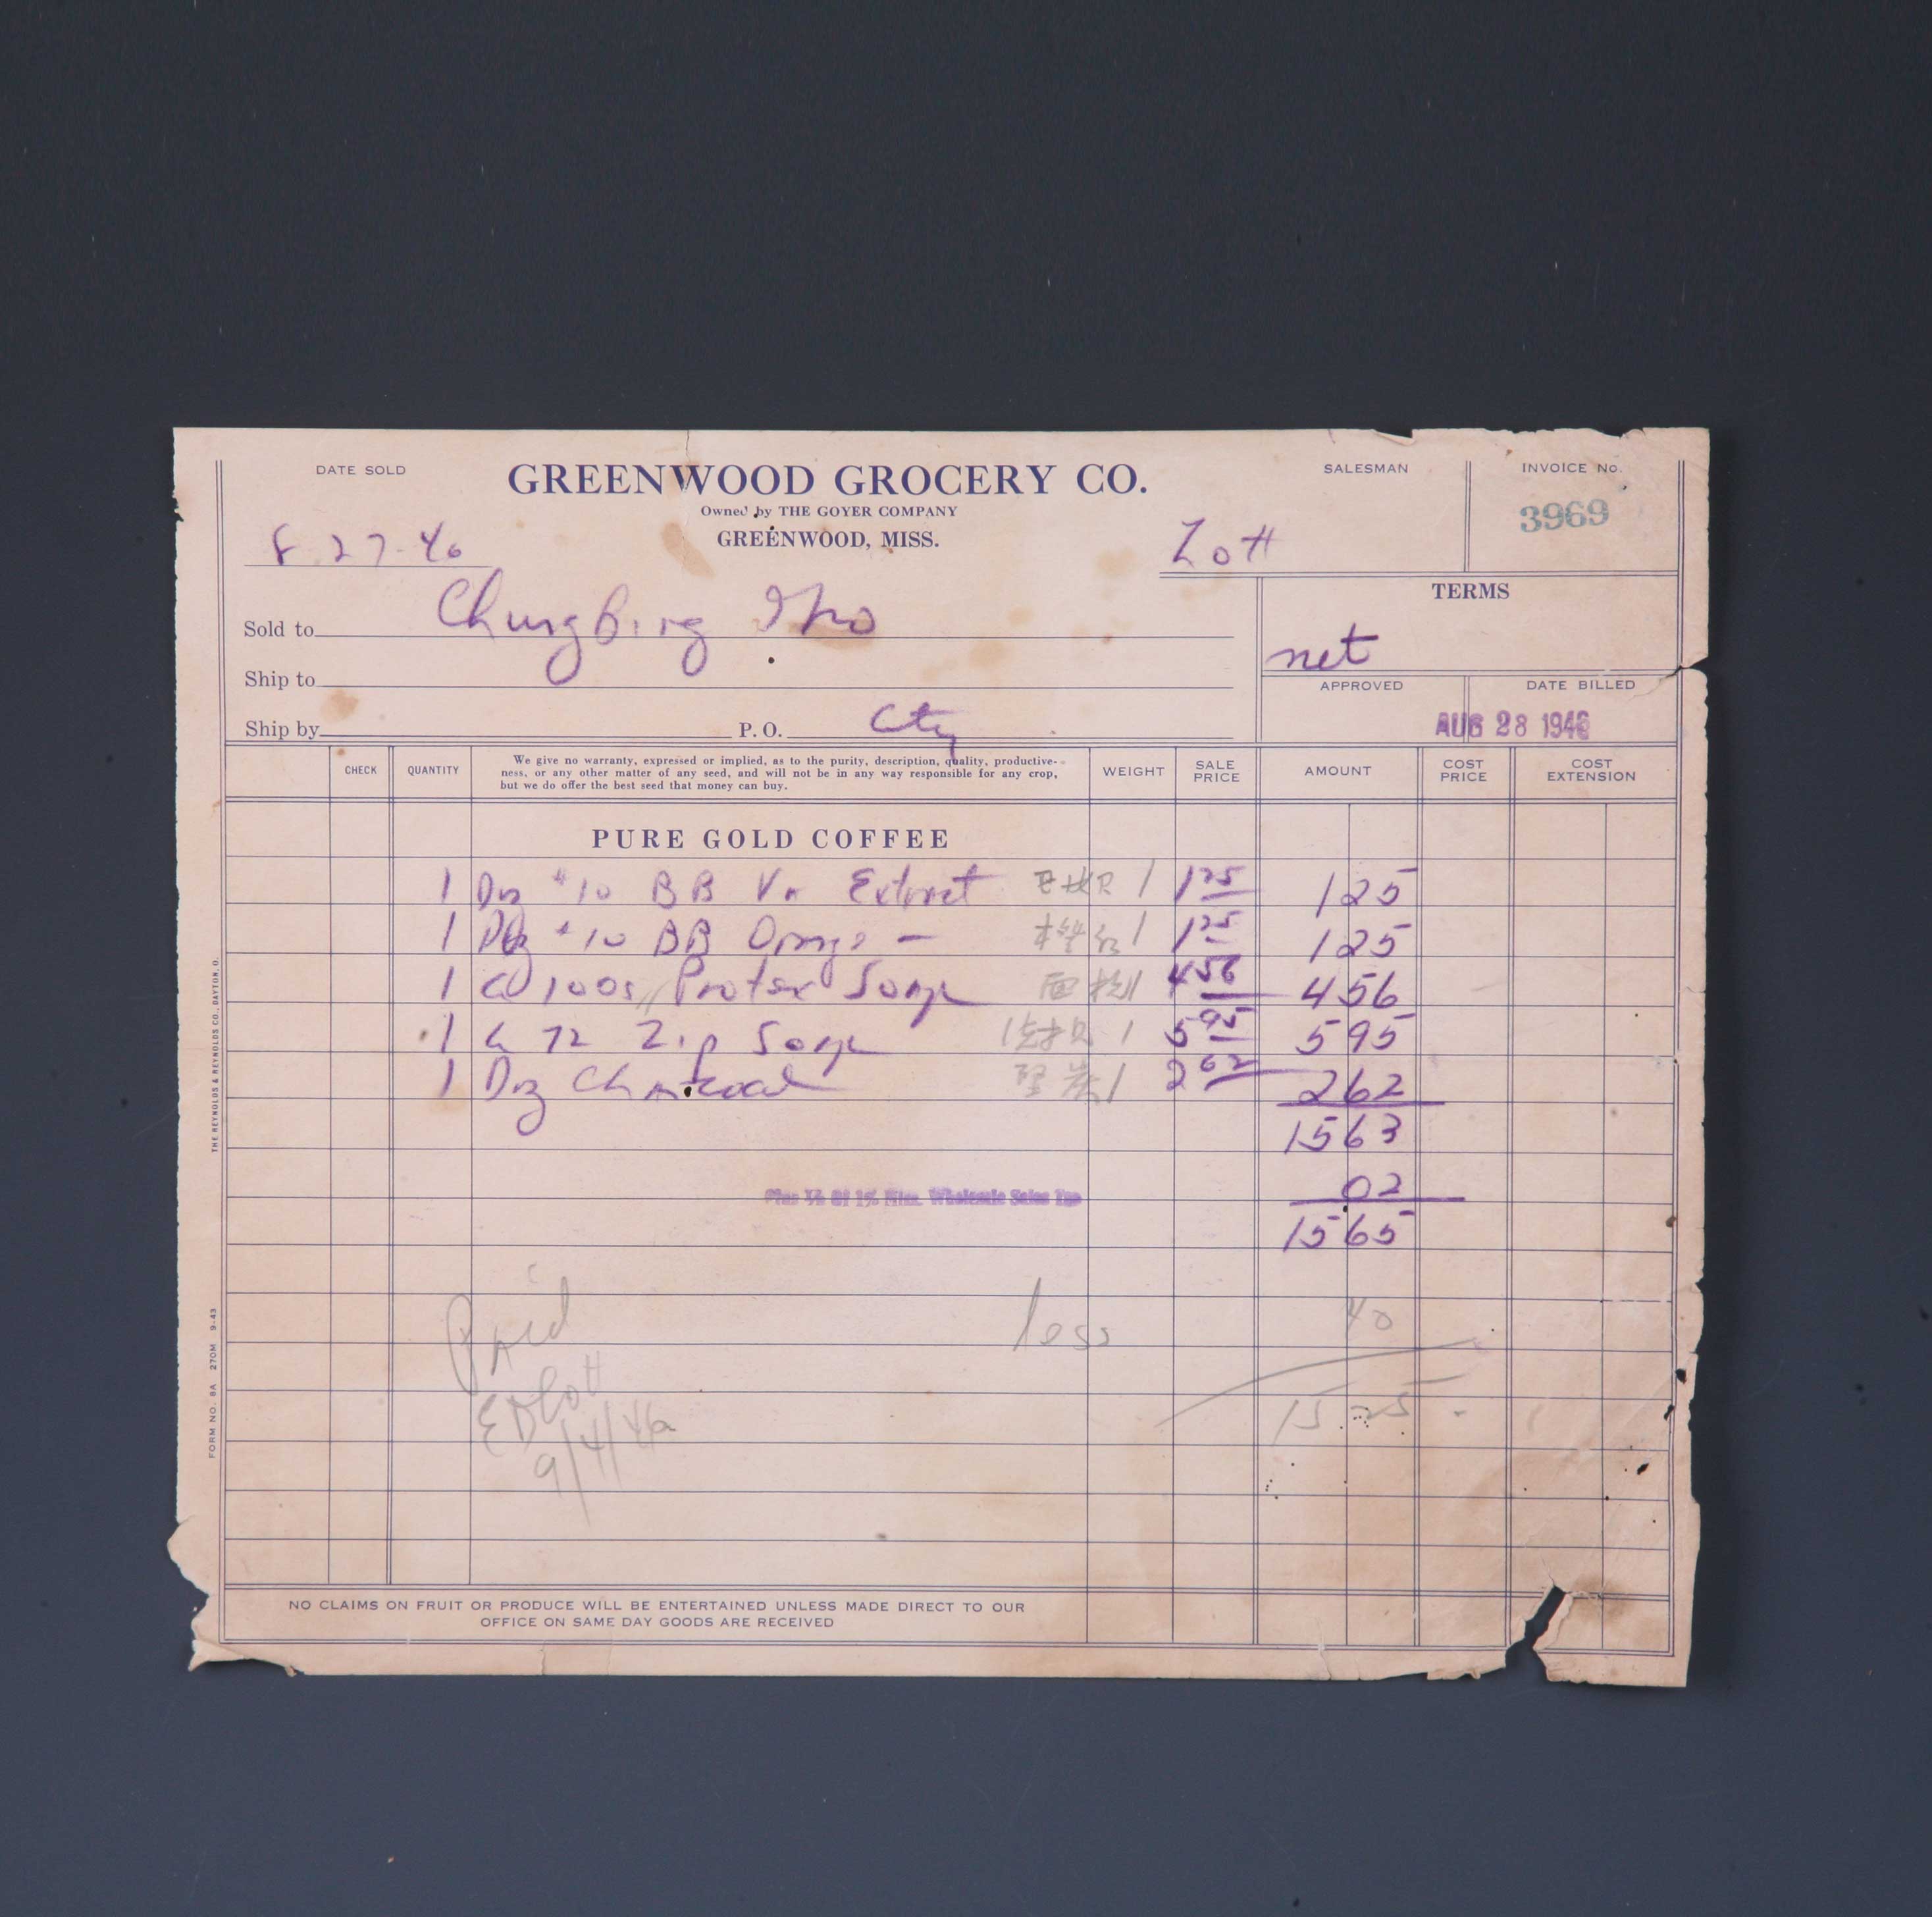 DATE SOLD
GREENWOOD GROCERY CO.
Owned by THE GOYER COMPANY
GREENWOOD, MISS.
SALESMAN
INVOICE No.
3969
8-27-46
Lott
Sold to Chung Bing
TERMS
net
Ship to
APPROVED
DATE BILLED
AUG 28 1946
Ship by P. O. City
CHECK
QUANTITY
We give no warranty, expressed or implied, as to the purity, description, quality, productive-
ness, or any other matter of any seed, and will not be in any way responsible for any crop,
but we do offer the best seed that money can buy.
WEIGHT
SALE PRICE
AMOUNT
COST PRICE
COST EXTENSION
PURE GOLD COFFEE
1 Doz #10 BB Va Extract 1 1 25 1 25
1 Doz #10 BB Orange — 1 1 25 1 25
1 100s Protex Soap 1 4 56 4 56
1 72 Zip Soap 1 5 95 5 95
1 Doz Charcoal 1 2 62 2 62
15 63
Plus 1/8 Of 1% Miss. Wholesale Sales Tax 02
15 65
less 40
15.25
Paid
ED Lott
9/4/46
NO CLAIMS ON FRUIT OR PRODUCE WILL BE ENTERTAINED UNLESS MADE DIRECT TO OUR
OFFICE ON SAME DAY GOODS ARE RECEIVED
THE REYNOLDS & REYNOLDS CO., DAYTON, O.
FORM NO. 8A 270M 9-43